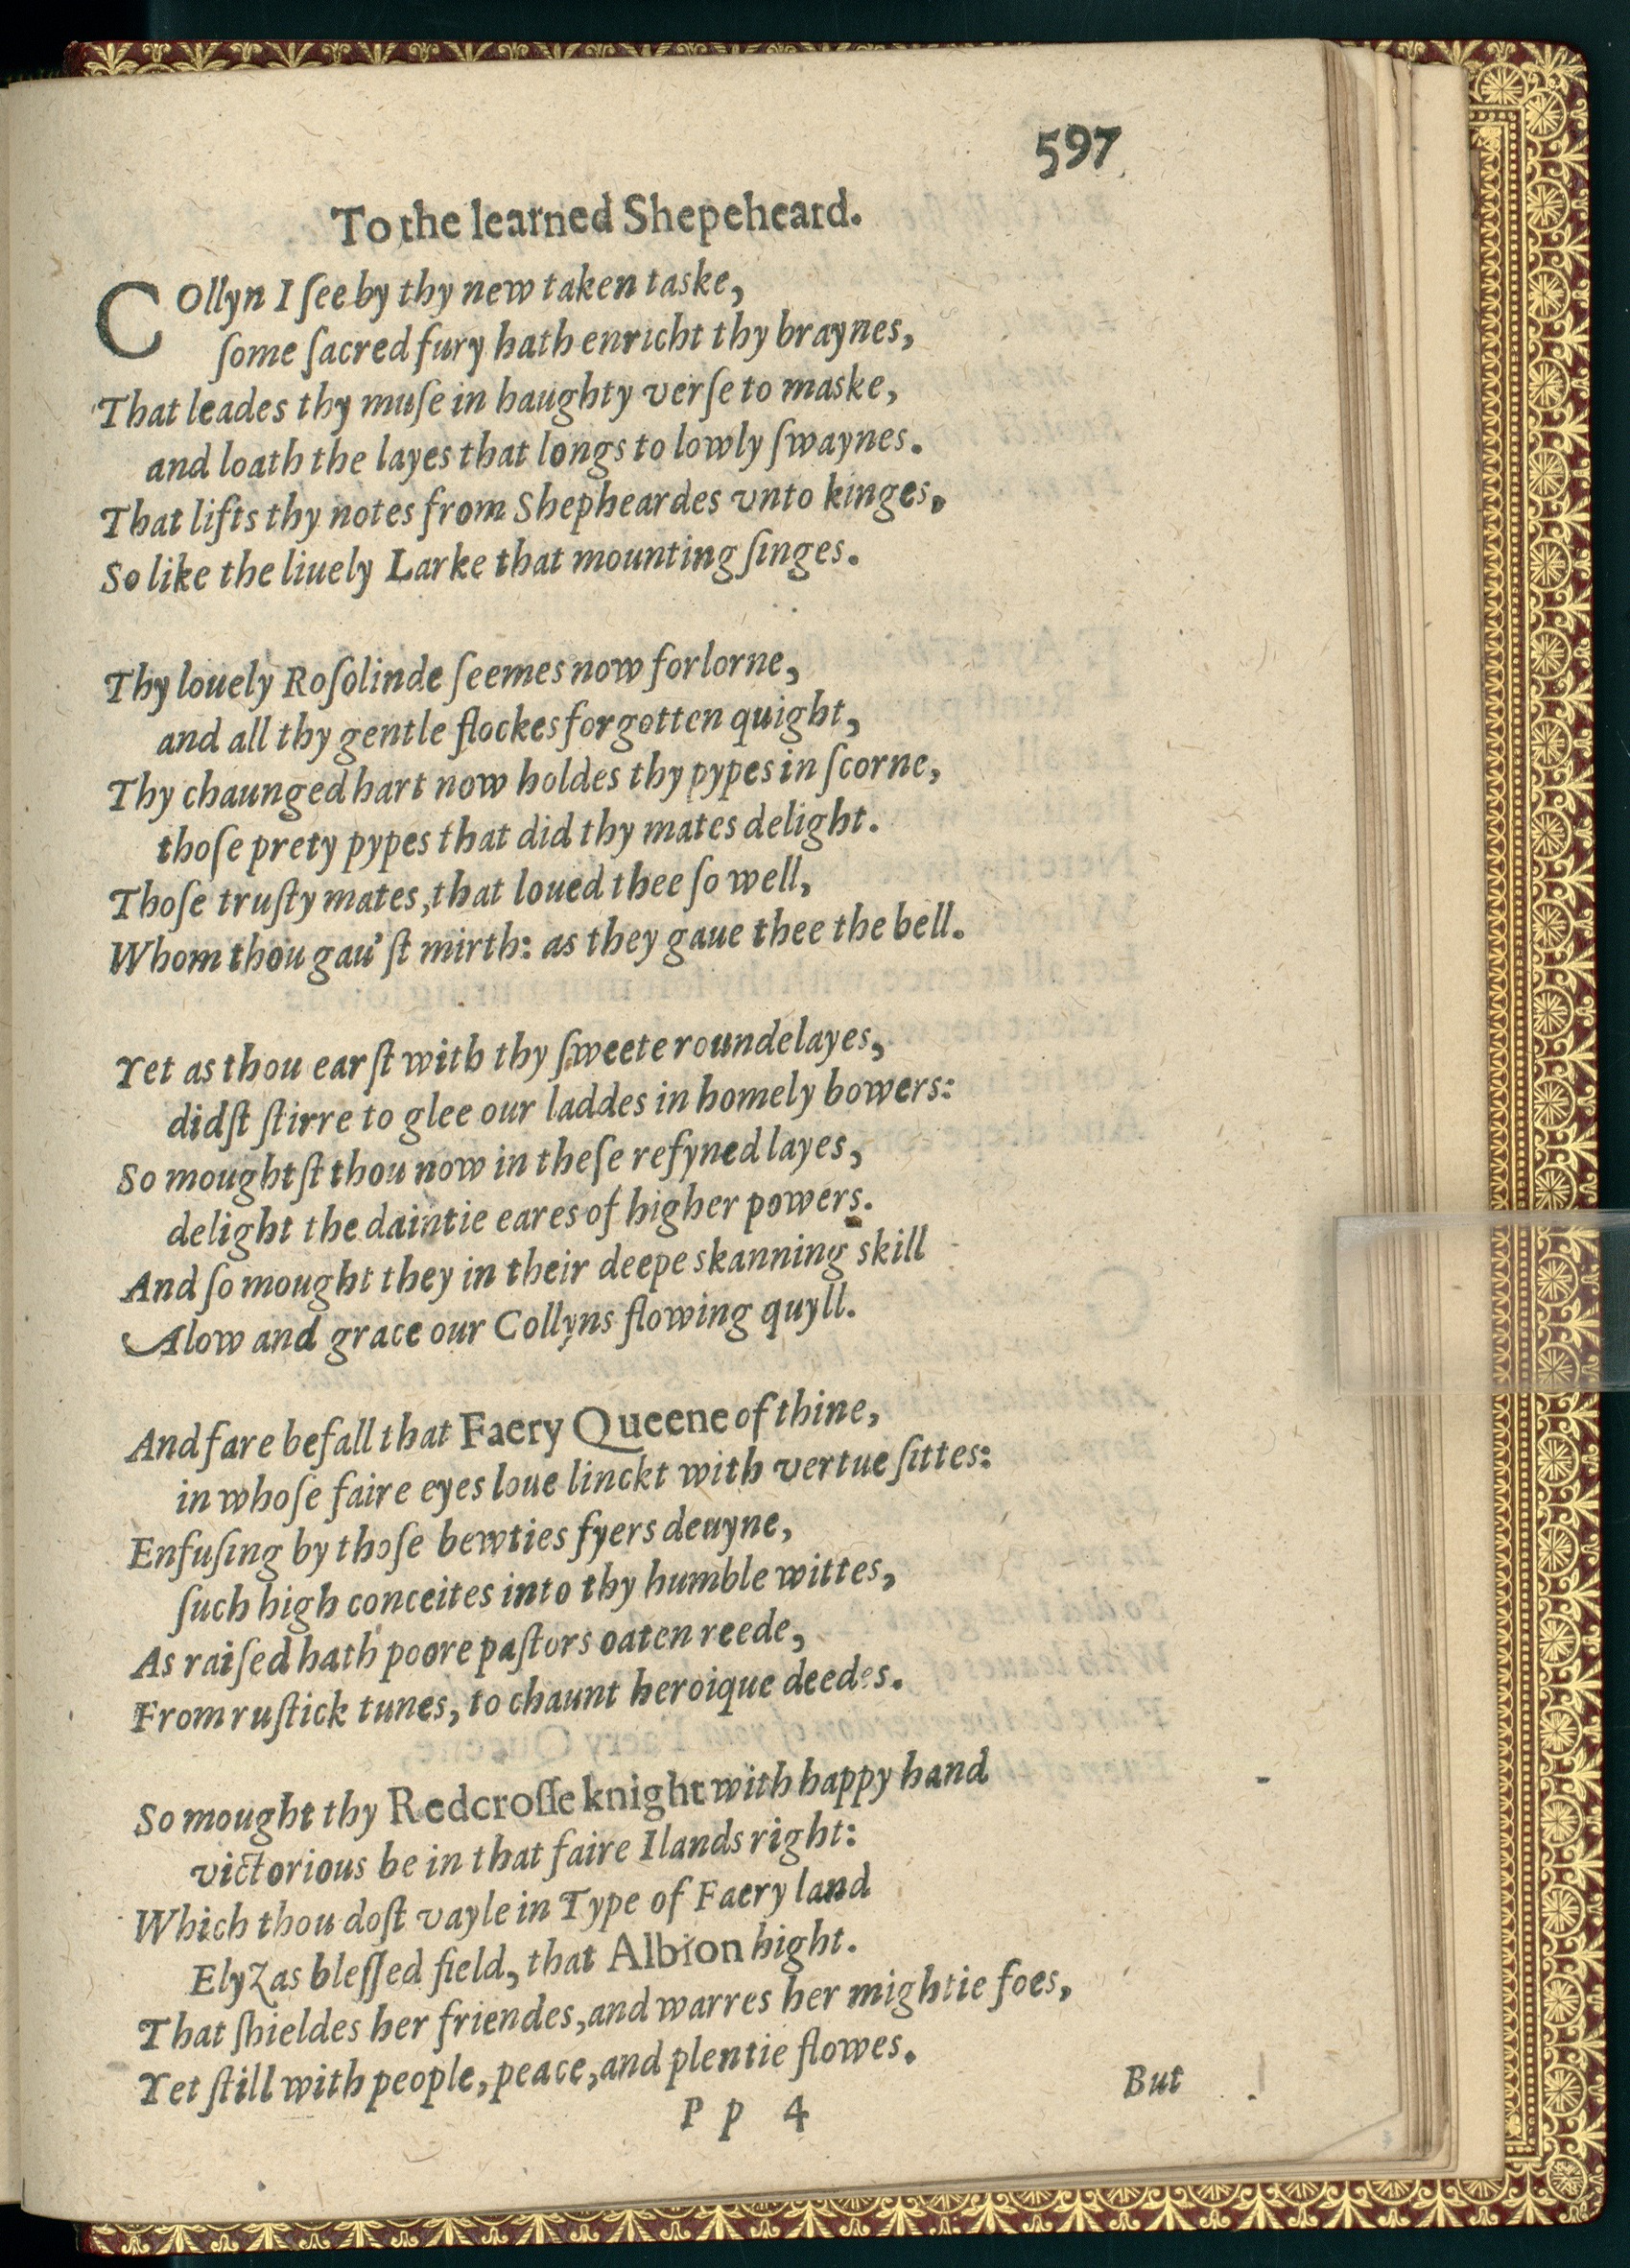 597
To the learned Shepeheard.
COllyn I ſee by thy new taken taske,
ſome ſacred fury hath enricht thy braynes,
That leades thy muſe in haughty verſe to maske,
and loath the layes that longs to lowly ſwaynes.
That lifts thy notes from Shepheardes vnto kinges,
So like the liuely Larke that mounting ſinges.
Thy louely Roſolinde ſeemes now forlorne,
and all thy gentle flockes forgotten quight,
Thy chaunged hart now holdes thy pypes in ſcorne,
thoſe prety pypes that did thy mates delight.
Thoſe truſty mates, that loued thee ſo well,
Whom thou gau'ſt mirth: as they gaue thee the bell.
Yet as thou earſt with thy ſweete roundelayes,
didſt ſtirre to glee our laddes in homely bowers:
So moughtſt thou now in theſe refyned layes,
delight the daintie eares of higher powers.
And ſo mought they in their deepe skanning skill
Alow and grace our Collyns flowing quyll.
And fare befall that Faery Queene of thine,
in whoſe faire eyes loue linckt with vertue ſittes:
Enfuſing by thoſe bewties fyers deuyne,
ſuch high conceites into thy humble wittes,
As raiſed hath poore paſtors oaten reede,
From ruſtick tunes, to chaunt heroique deedes.
So mought thy Redcroſſe knight with happy hand
victorious be in that faire Ilands right:
Which thou doſt vayle in Type of Faery land
Elyzas bleſſed field, that Albion hight.
That ſhieldes her friendes, and warres her mightie foes,
Yet ſtill with people, peace, and plentie flowes.
P p 4
But